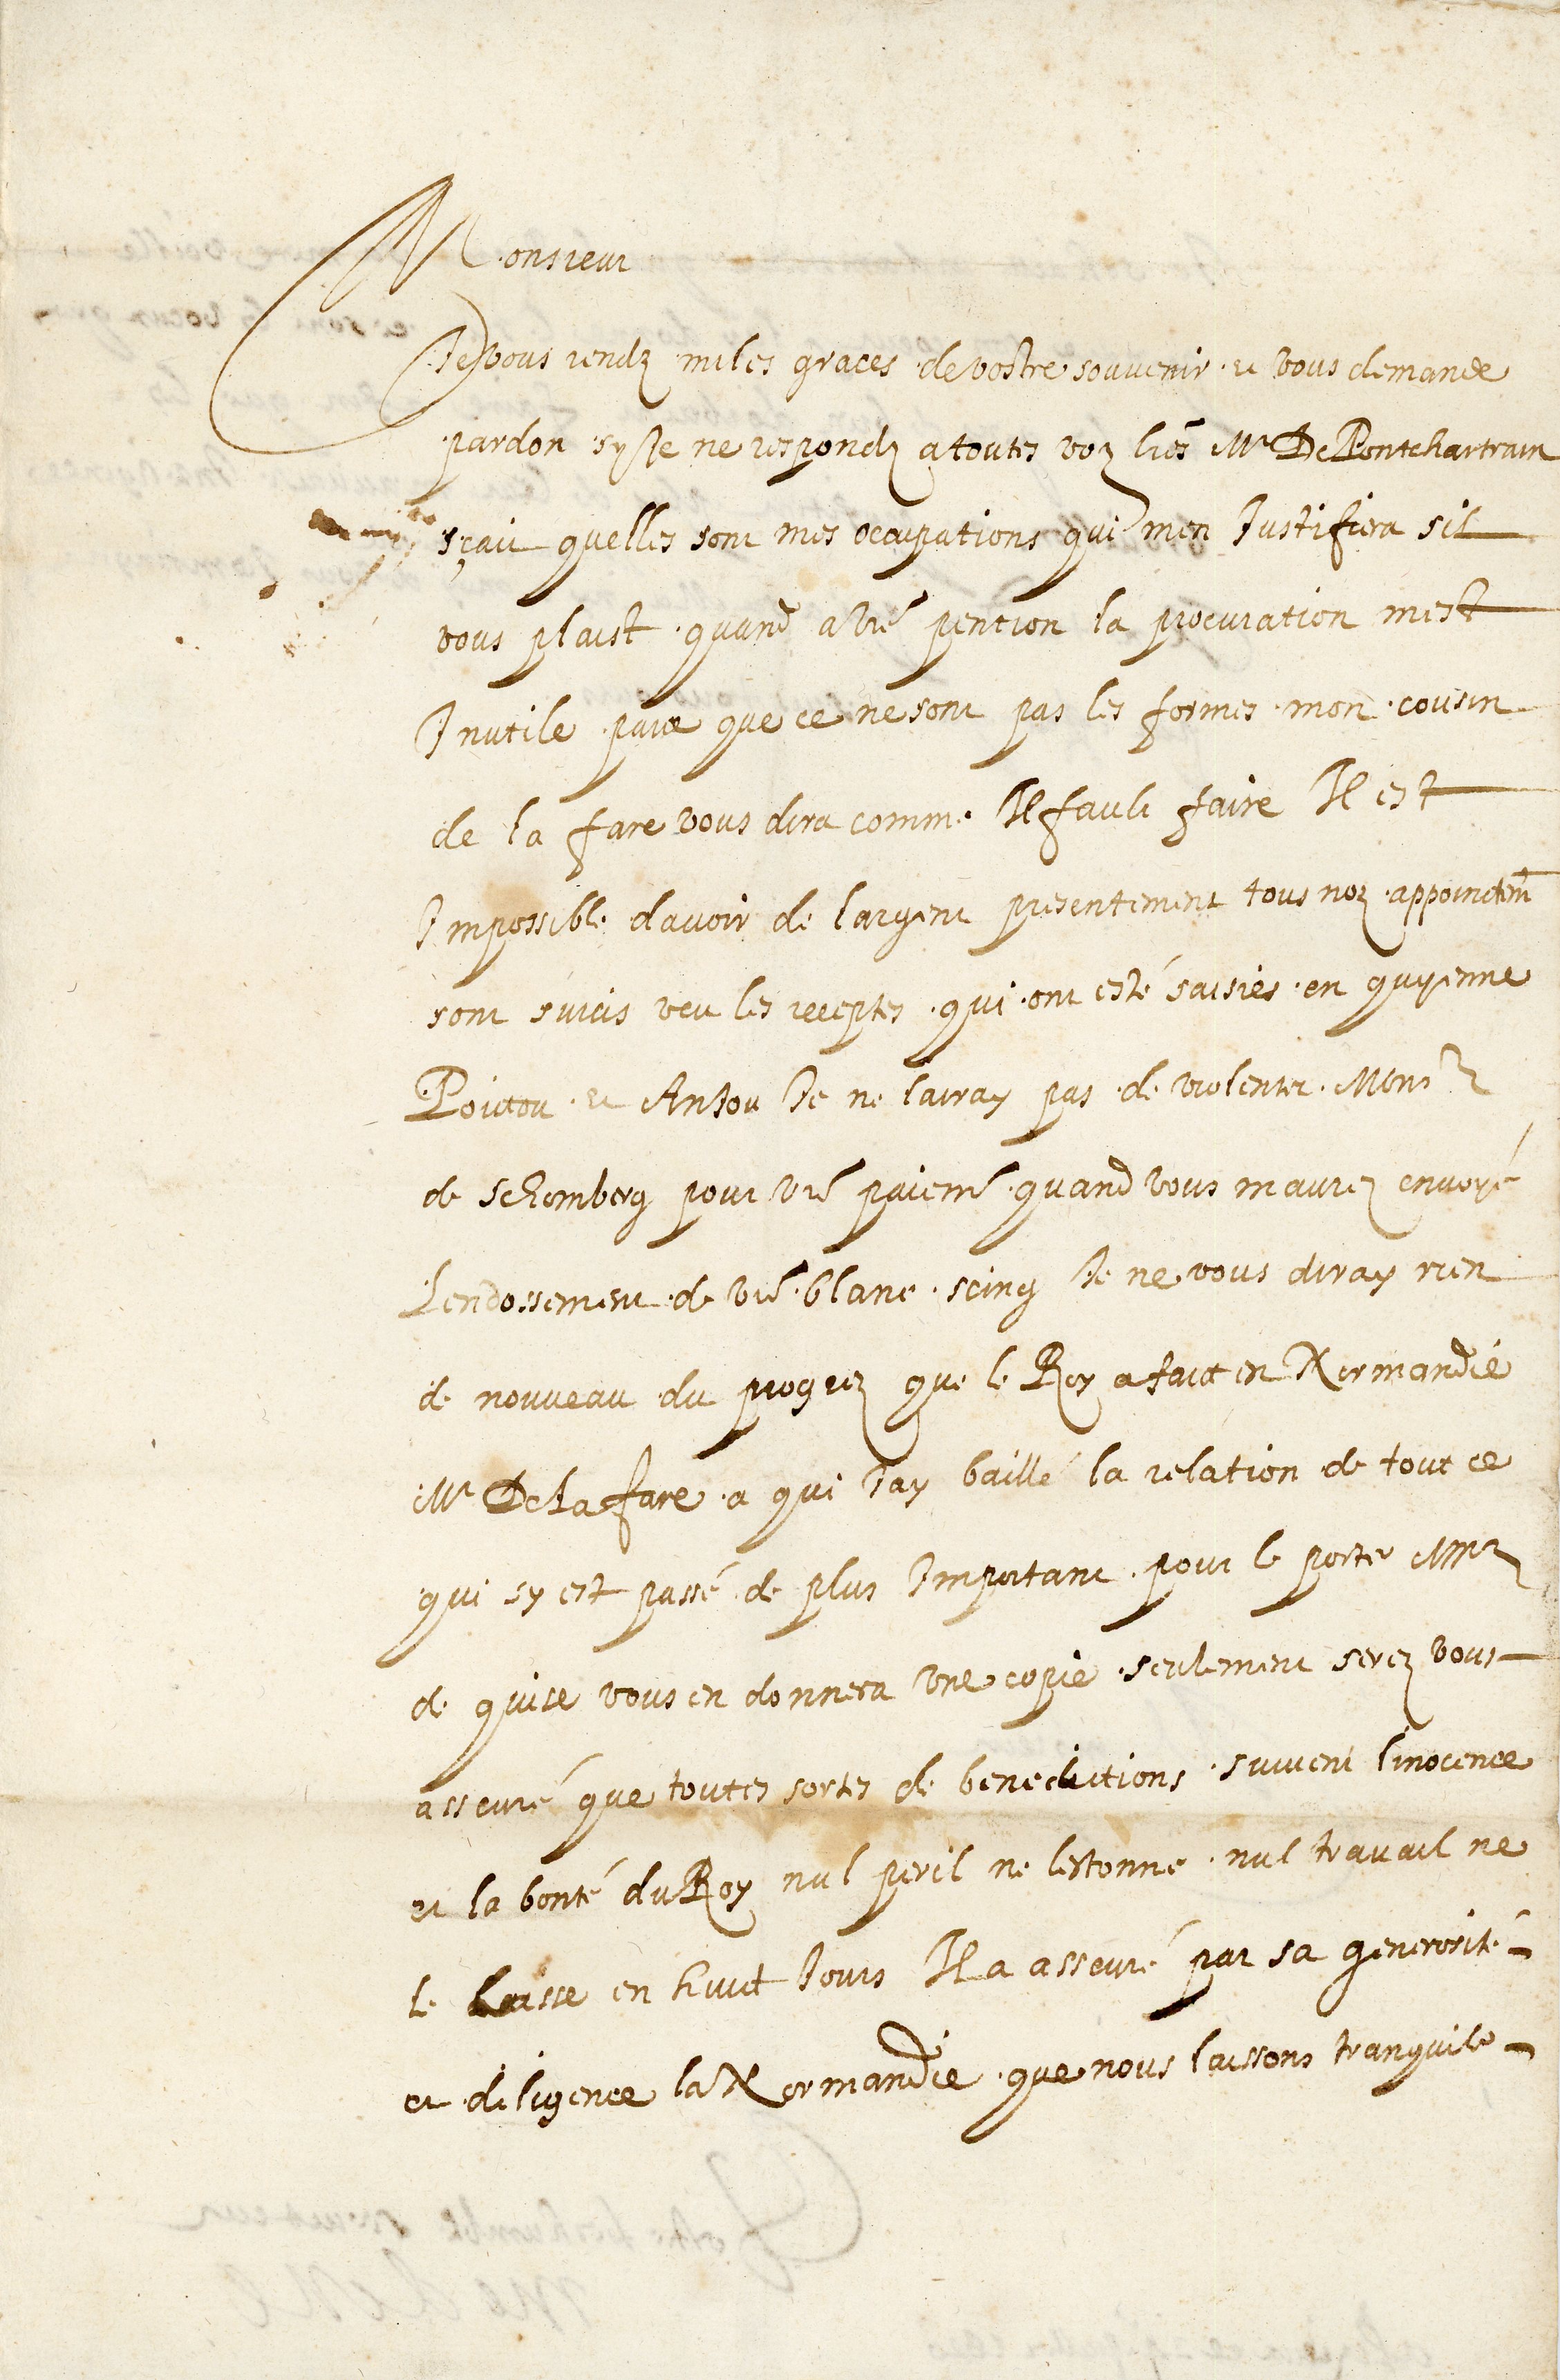 Monsieur
Je vous rendz miles graces de vostre souvenir et vous demande
pardon sy Je ne respondz a toutes voz lres Mr De Pontchartrain
sçait quelles sont mes ocupations qui men Justifiera sil
vous plaist quand a vre pention la procuration mest
Inutile parce que ce ne sont pas les formes mon cousin
de la fare vous dira comme Il fault faire Il est
Impossible davoir de largent presentement tous noz appointemt
sont surcis veu les receptes qui ont esté saisies en guyenne
Poictou et Anjou Je ne lairay pas de violenter Monsr
de schomberg pour vre paiemt quand vous maurez envoyé
Lendossement de vre blanc seing Je ne vous diray rien
de nouveau du progrez que le Roy a faict en Normandie
Mr De La fare a qui Jay baillé la relation de tout ce
qui sy est passé de plus Important pour le porter a Mr
de guise vous en donnera une copie seulement serez vous
asseuré que toutes sortes de benedictions suivent linocence
et la bonté du Roy nul peril ne lestonne nul travail ne
le lasse en huict Jours Il a asseuré par sa generosité
et diligence la Normandie que nous laissons tranquile